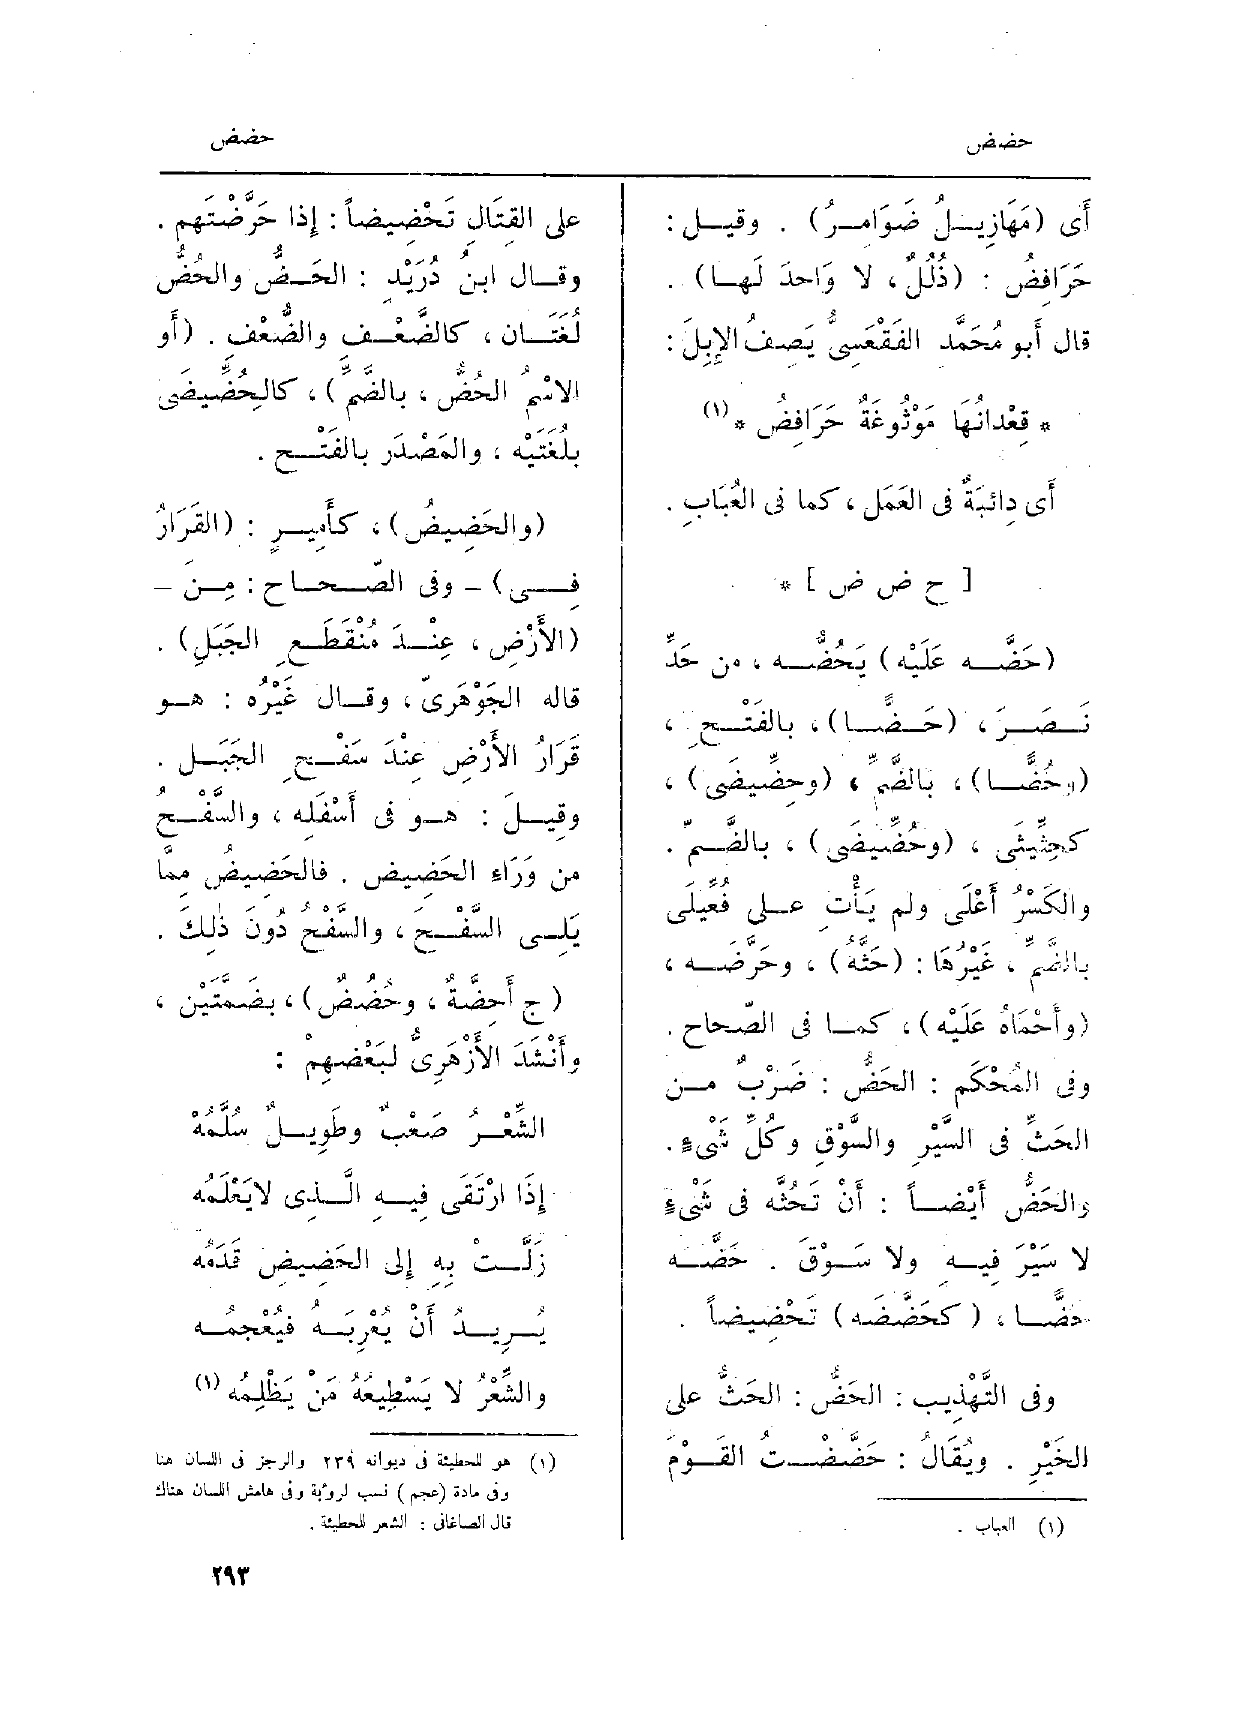 حضض
حضض
أَى (مَهَازِيــلُ ضَوَامــرُ) . وقيــل :
حَرَافِضُ : (ذُلُلٌ، لا وَاحدَ لَهــا) .
قال أَبو مُحَمَّد الفَقْعَسِىُّ يَصِفُ الإِبِلَ :
* قِعْدانُهَا مَوْثُوغَةٌ حَرَافِضُ * (١)
أَى دائِبَةٌ فى العَمَل ، كما فى العُبَابِ .
[ ح ض ض ] *
(حَضَّــه عَلَيْه) يَحُضُّــه ، من حَدِّ
نَــصَــرَ ، (حَــضًّــا) ، بالفَتْــح ،
(وحُضًّــا) ، بالضَّمِّ ، (وحِضِّيضَى) ،
كحِثِّيثَى ، (وحُضِّيضَى) ، بالضَّــمّ .
والكَسْرُ أَعْلَى ولم يَأْتِ عــلى فُعِّيلَى
بالضَّمِّ ، غَيْرُهَا : (حَثَّهُ) ، وحَرَّضَــه ،
(وأَحْمَاهُ عَلَيْه) ، كمــا فى الصّحاح .
وفى المُحْكَم : الحَضُّ : ضَرْبٌ مــن
الحَثِّ فى السَّيْرِ والسَّوْقِ وكُلِّ شَىْءٍ .
والحَضُّ أَيْضــاً : أَنْ تَحُثَّه فى شَىْءٍ
لا سَيْرَ فيــهِ ولا سَــوْقَ . حَضَّــه
حَضًّــا ، (كحَضَّضَه) تَحْضِيضاً .
وفى التَّهْذِيب : الحَضُّ : الحَثُّ على
الخَيْرِ . ويُقَالُ : حَضَّضْــتُ القَــوْمَ
(١) العباب .
على القِتَالِ تَحْضِيضاً : إِذا حَرَّضْتَهم .
وقــال ابنُ دُرَيْد : الحَــضُّ والحُضُّ
لُغَتَــان ، كالضَّعْــف والضُّعْف . (أَو
الاسْمُ الحُضُّ ، بالضَّمِّ) ، كالحُضِّيضَى
بلُغَتَيْه ، والمَصْدَر بالفَتْــح .
(والحَضِيضُ) ، كأَمِيــرٍ : (القَرَارُ
فِــى) – وفى الصّــحــاح : مِــنَ –
(الأَرْضِ ، عِنْــدَ مُنْقَطَــعِ الجَبَلِ) .
قاله الجَوْهَرىّ ، وقــال غَيْرُه : هــو
قَرَارُ الأَرْضِ عِنْدَ سَفْــحِ الجَبَــل .
وقِيــلَ : هــو فى أَسْفَله ، والسَّفْــحُ
من وَرَاءِ الحَضِيض . فالحَضِيضُ ممَّا
يَلِــى السَّفْــحَ ، والسَّفْحُ دُونَ ذٰلِكَ .
(ج أَحِضَّةٌ ، وحُضُضٌ) ، بضَمَّتَيْن ،
وأَنْشَدَ الأَزْهَرِىُّ لبَعْضِهِمْ :
الشِّعْــرُ صَعْبٌ وطَوِيــلٌ سُلَّمُهْ
إِذَا ارْتَقَى فِيــهِ الَّــذِى لايَعْلَمُهْ
زَلَّــتْ بِهِ إِلى الحَضِيضِ قَدَمُهْ
يُــرِيــدُ أَنْ يُعْرِبَــهُ فيُعْجِمُــهْ
والشِّعْرُ لا يَسْطِيعُهُ مَنْ يَظْلِمُهْ (١)
(١) هو للحطيئة فى ديوانه ٢٣٩ والرجز فى اللسان هنا
وفى مادة (عجم) نسب لرؤبة وفى هامش اللسان هناك
قال الصاغانى : الشعر للحطيئة .
٢٩٣